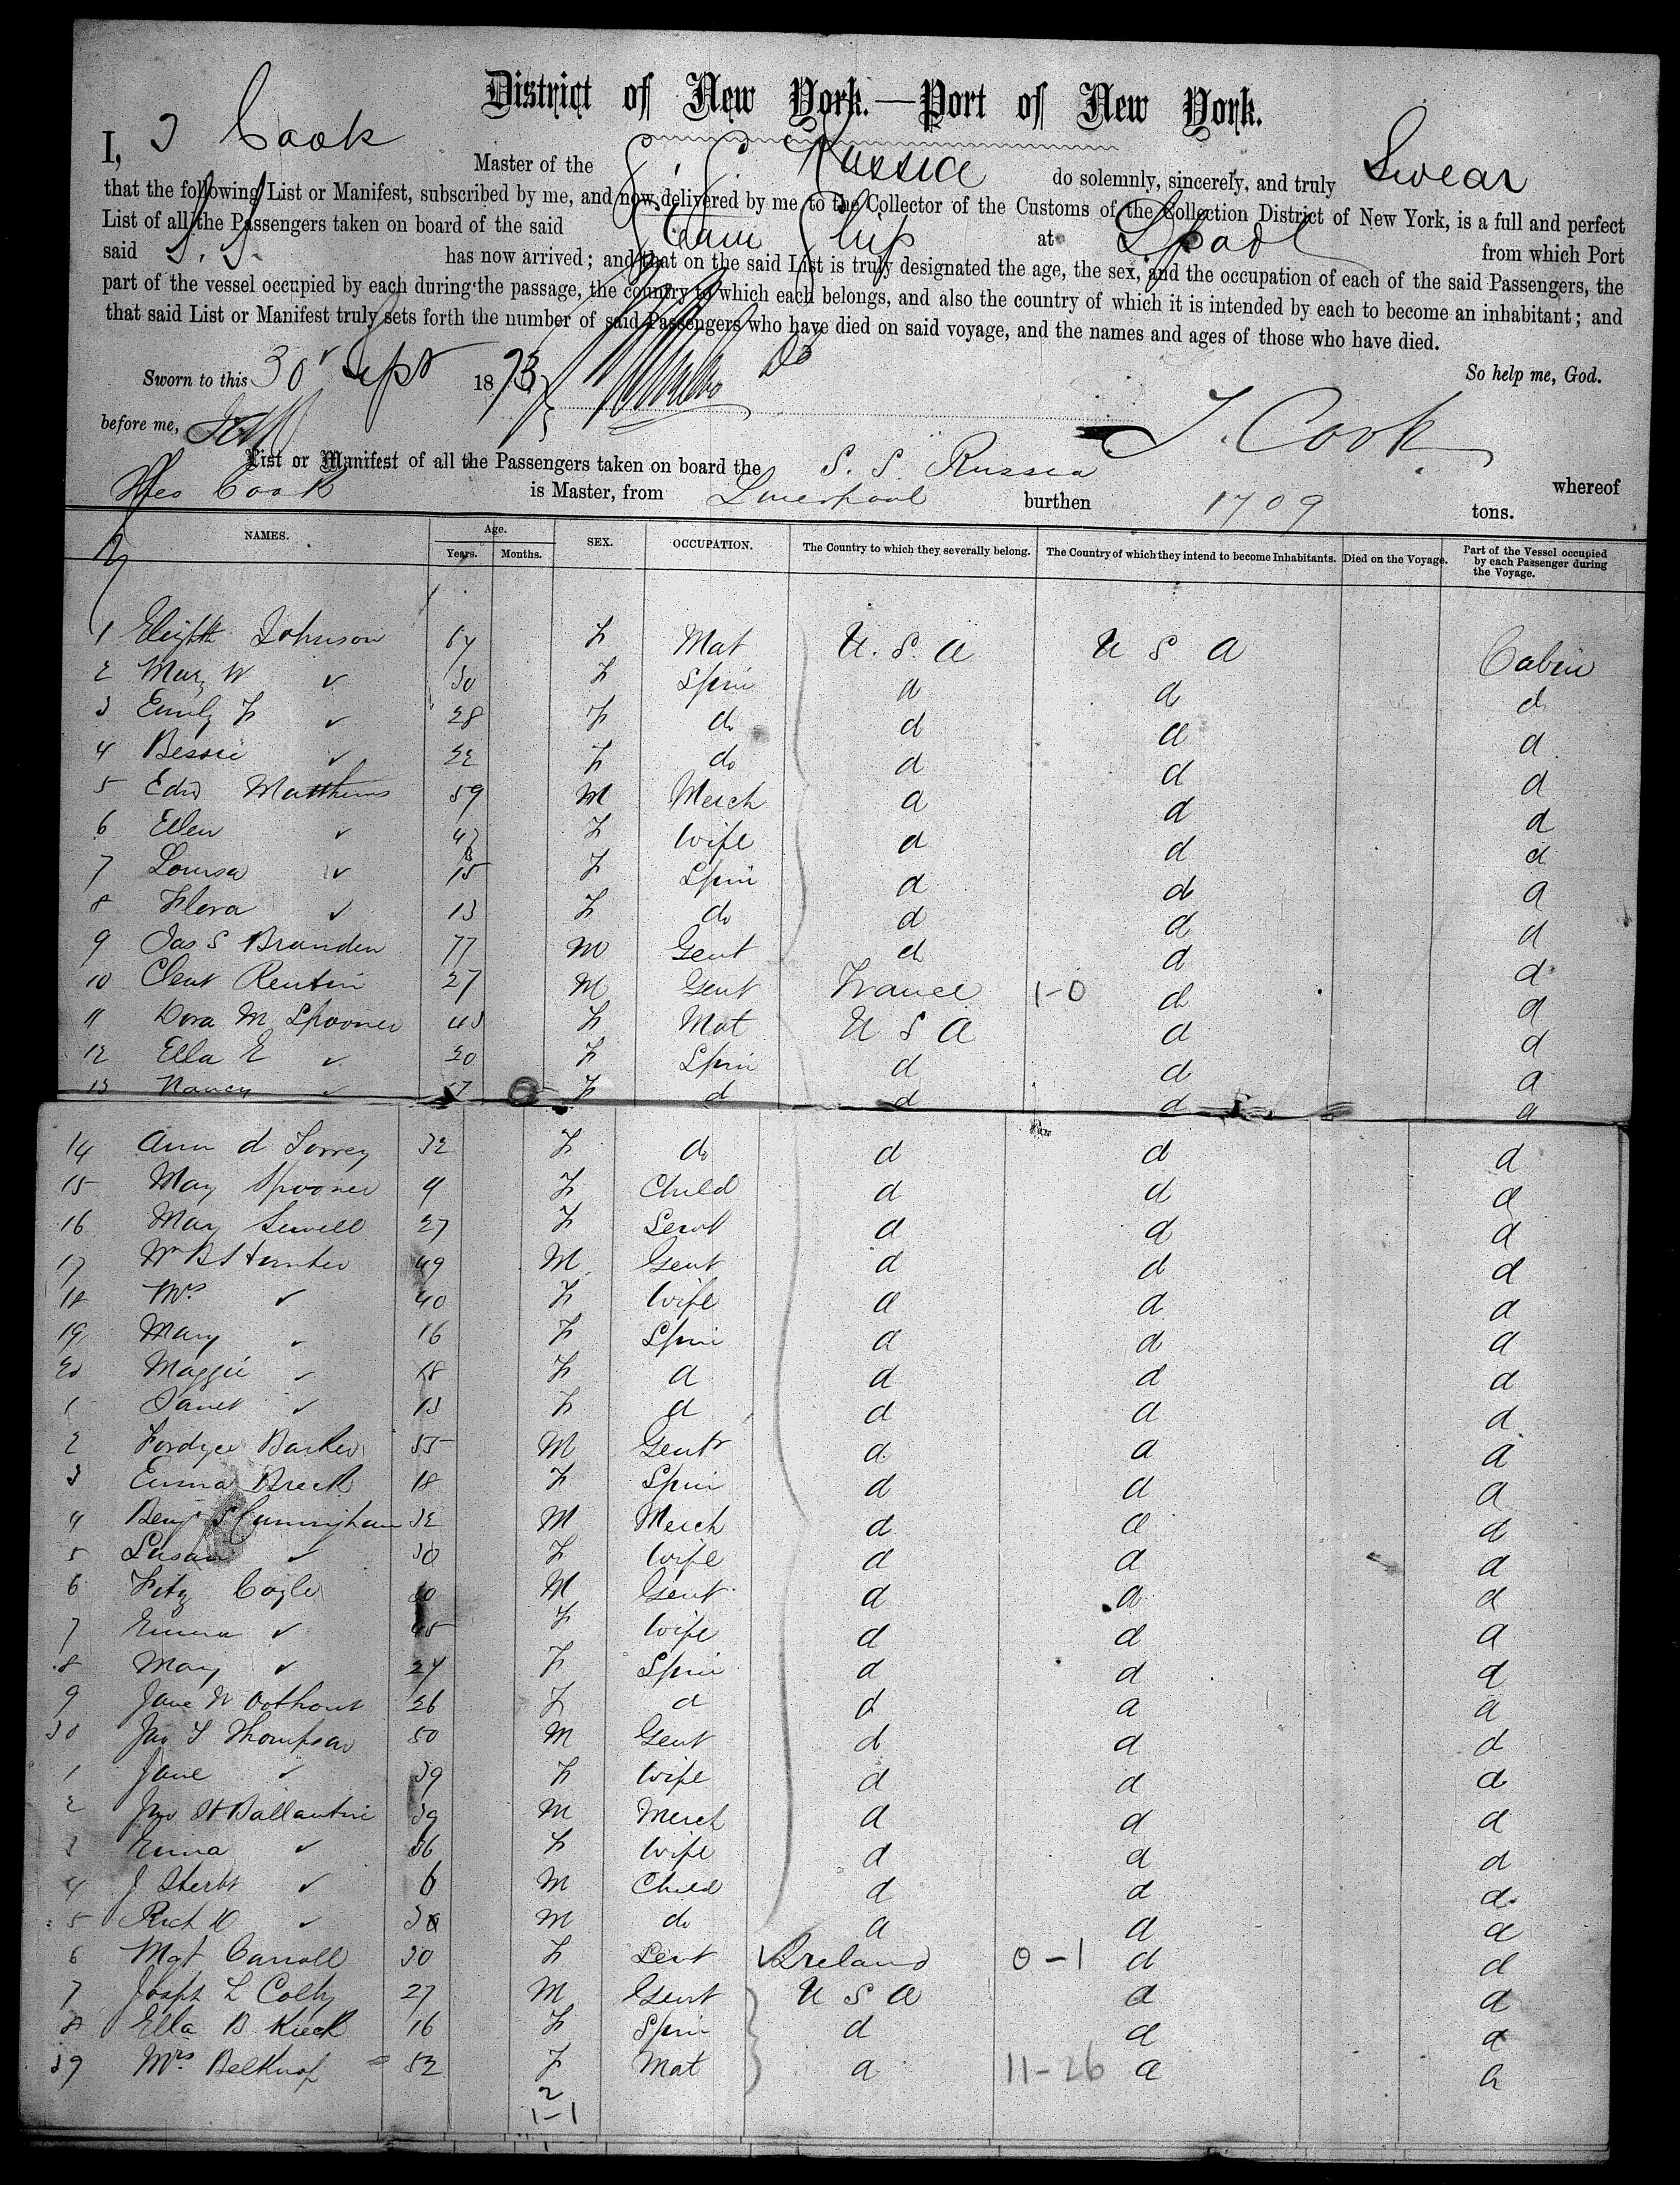 District of New York.—Port of New York.
I, T Cook Master of the S. S. Russia do solemnly, sincerely, and truly Swear
that the following List or Manifest, subscribed by me, and now delivered by me to the Collector of the Customs of the Collection District of New York, is a full and perfect
List of all the Passengers taken on board of the said Steam Ship at Lpool from which Port
said S. S. has now arrived; and that on the said List is truly designated the age, the sex, and the occupation of each of the said Passengers, the
part of the vessel occupied by each during the passage, the country to which each belongs, and also the country of which it is intended by each to become an inhabitant; and
that said List or Manifest truly sets forth the number of said Passengers who have died on said voyage, and the names and ages of those who have died.
Sworn to this 30 Sept 1873 So help me, God.
before me, T. Cook
List or Manifest of all the Passengers taken on board the S. S. Russia whereof
Theo Cook is Master, from Liverpool burthen 1709 tons.
NAMES. Age. Years. Months. SEX. OCCUPATION. The Country to which they severally belong. The Country of which they intend to become Inhabitants. Died on the Voyage. Part of the Vessel occupied by each Passenger during the Voyage.
1 Elizth Johnson 67 F Mat U. S. A U S A Cabin
2 Mary W ✓ 30 F Spin d d d
3 Emily F ✓ 28 F do d d d
4 Bessie ✓ 22 F do d d d
5 Edwd Matthews 59 M Merch d d d
6 Ellen ✓ 43 F Wife d d d
7 Louisa ✓ 15 F Spin d do d
8 Flora ✓ 13 F do d d d
9 Jas S Branden 77 M Gent d d d
10 Clent Rentin 27 M Gent France 1-0 d d
11 Dora M Spooner 43 F Mat U S A d d
12 Ella E ✓ 20 F Spin d d d
13 Nancy ✓ 17 F d d d d
14 Ann d Torrey 32 F do d d d
15 May Spooner 9 F Child d d d
16 Mary Sewell 27 F Servt d d d
17 Wm B Hunter 49 M Gent d d d
18 Mrs ✓ 40 F Wife d d d
19 Mary ✓ 16 F Spin d d d
20 Maggie ✓ 18 F d d d d
1 Janet ✓ 13 F d d d d
2 Fordyce Barker 55 M Gent d d d
3 Emma Breck 18 F Spin d d d
4 Benj S Cunningham 32 M Merch d d d
5 Susan ✓ 30 F Wife d d d
6 Fitz Cogle M Gent d d d
7 Emma ✓ 45 F Wife d d d
8 Mary ✓ 24 F Spin d d d
9 Jane N Oothout 26 F d d d d
30 Jno T Thompson 50 M Gent d d d
1 Jane ✓ 39 F Wife d d d
2 Jno H Ballantine 39 M Merch d d d
3 Emma ✓ 36 F Wife d d d
4 J Herbt ✓ 6 M Child d d d
5 Rich D ✓ M do d d d
6 Mgt Carroll 30 F Servt Ireland 0-1 d d
7 Joseph L Colby 27 M Gent U S A d d
8 Ella B Kieck 16 F Spin d d d
39 Mrs Belknap 52 F Mat d 11-26 d d
2
1-1